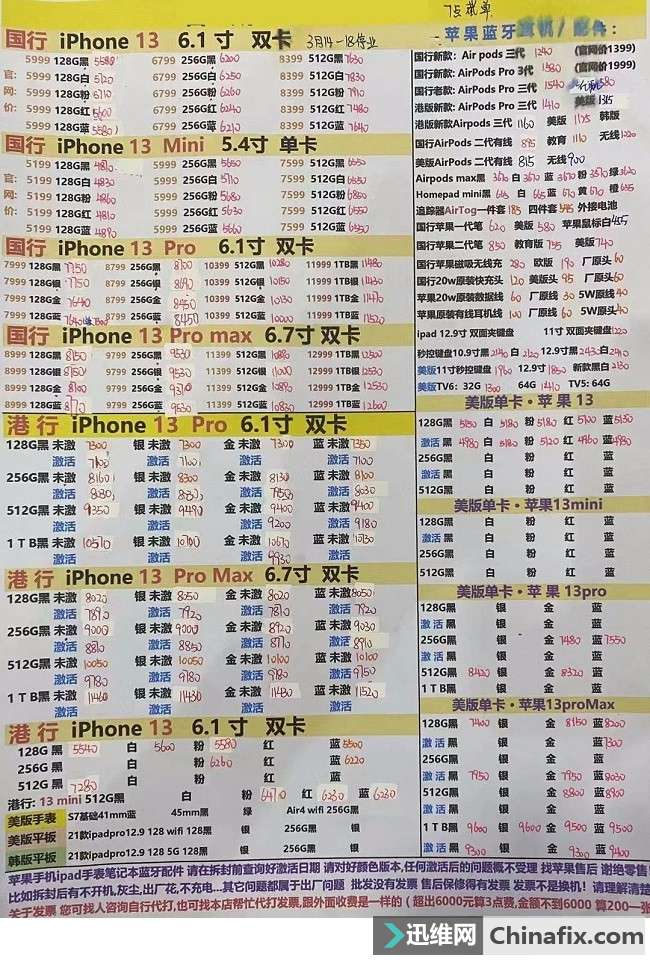 7点散单
国行 iPhone 13 6.1寸 双卡 3月14-18停业
5999 128G黑 5999 256G黑 6200 8399 512G黑 7650
官: 5999 128G白 5120 6799 256G白 6250 8399 512G白 7830
网: 5999 128G粉 6799 256G粉 6210 8399 512G粉 7540
价: 5999 128G红 5600 6799 256G红 6240 8399 512G红 7480
5999 128G蓝 5580 6799 256G蓝 6210 8399 512G蓝 7640
国行 iPhone 13 Mini 5.4寸 单卡
5199 128G黑 4810 5999 256G黑 7599 512G黑 6550
官: 5199 128G白 4830 5999 256G白 5710 7599 512G白 6550
网: 5199 128G粉 4860 5999 256G粉 5680 7599 512G粉 6850
价: 5199 128G红 4810 5999 256G红 5630 7599 512G红 6550
5199 128G蓝 4890 5999 256G蓝 5660 7599 512G蓝 6550
国行 iPhone 13 Pro 6.1寸 双卡
7999 128G黑 7750 8799 256G黑 8700 10399 512G黑 10280 11999 1TB黑 11480
7999 128G银 7750 8799 256G银 8690 10399 512G银 10130 11999 1TB银 11430
7999 128G金 7640 8799 256G金 8450 10399 512G金 10130 11999 1TB金 11470
7999 128G蓝 8799 256G蓝 8450 10399 512G蓝 10000 11999 1TB蓝 11520
国行 iPhone 13 Pro max 6.7寸 双卡
8999 128G黑 8150 9799 256G黑 9530 11399 512G黑 10880 12999 1TB黑 12500
8999 128G银 8150 9799 256G银 9530 11399 512G银 11000 12999 1TB银 12480
8999 128G金 8100 9799 256G金 9370 11399 512G金 10890 12999 1TB金 12530
8999 128G蓝 8170 9799 256G蓝 9530 11399 512G蓝 10830 12999 1TB蓝 12600
港行 iPhone 13 Pro 6.1寸 双卡
128G黑 未激 7300 银 未激 7300 金 未激 7300 蓝 未激 7350
激活 7100 激活 7100 激活 激活 7100
256G黑 未激 8160 银 未激 8300 金 未激 8130 蓝 未激 8100
激活 8030 激活 激活 激活 8030
512G黑 未激 9350 银 未激 9490 金 未激 9400 蓝 未激 9400
激活 激活 激活 9200 激活 9180
1 T B黑 未激 10570 银 未激 10700 金 未激 10670 蓝 未激 10730
激活 激活 激活 9930 激活
港行 iPhone 13 Pro Max 6.7寸 双卡
128G黑 未激 8020 银 未激 8050 金 未激 8020 蓝 未激 8050
激活 7890 激活 7920 激活 7810 激活 7920
256G黑 未激 9000 银 未激 9000 金 未激 8920 蓝 未激 9030
激活 8810 激活 8850 激活 8770 激活 8910
512G黑 未激 10050 银 未激 10050 金 未激 10100 蓝 未激 10100
激活 9780 激活 9780 激活 9780 激活 9750
1 T B黑 未激 11460 银 未激 11430 金 未激 11430 蓝 未激 11520
激活 激活 激活 激活
港行 iPhone 13 6.1寸 双卡
128G 黑 5540 白 5600 粉 5580 红 蓝 5500
256G 黑 白 粉 6260 红 蓝 6220
512G 黑 7280 白 粉 红 蓝
港行: 13 mini 512G黑 白 粉 6410 红 6230 蓝 6230
美版手表 S7基础41mm蓝 45mm黑 绿 Air4 wifi 256G黑
美版平板 21款ipadpro12.9 128 wifi 128黑 银 256G黑 银
韩版平板 21款ipadpro12.9 128 5G 128黑 银 256G黑 银
苹果蓝牙耳机/配件:
国行新款: Air pods 三代 1240 (官网价1399)
国行新款: AirPods Pro 3代 1580 (官网价1999)
国行老款: AirPods Pro 三代 1540
港版新款: AirPods Pro 三代 1410 美版 1315
港版新款Airpods 三代 1160 美版 1125 韩版
国行AirPods 二代有线 895 教育 1110 无线 1020
美版AirPods 二代有线 815 无线 900
Airpods max黑 3670 白 3670 蓝 3670 粉 3570 绿 3620
Homepad mini黑 665 白 665 蓝 670 黄 670 橙 655
追踪器AirTog一件套 185 四件套 545 外接电池
国行苹果一代笔 620 美版 580 苹果鼠标白 455
国行苹果二代笔 850 教育版 735 美版 740
国行苹果磁吸无线充 280 欧版 190 厂原头 60
国行20w原装快充头 120 美版头 95 厂原头 60
苹果20w原装数据线 60 厂原线 30 5W原线 40
苹果原装有线耳机线 100 厂原线 60 5W原头 40
ipad 12.9寸 双面夹键盘 11寸 双面夹键盘
秒控键盘10.9寸黑 2140 白 2120 12.9寸黑 2430 白 2410
美版11寸秒控键盘 1960 12.9寸 1850 新款黑白 2130
美版TV6: 32G 1300 64G 1410 TV5: 64G
美版单卡·苹果 13
128G黑 5150 白 5180 粉 5180 红 5100 蓝 5130
激活 黑 4980 白 5180 粉 5120 红 4960 蓝 4980
256G黑 白 粉 红 蓝
激活 黑 白 粉 红 蓝
512G黑 白 粉 红 蓝
美版单卡·苹果13mini
128G黑 白 粉 红 蓝
激活黑 白 粉 红 蓝
256G黑 白 粉 红 蓝
512G黑 白 粉 红 蓝
美版单卡·苹果13pro
128G黑 银 金 蓝
激活 黑 银 金 蓝
256G黑 银 金 7480 蓝 7550
激活 黑 银 金 蓝
512G黑 8420 银 金 8320 蓝
1 T B黑 银 金 蓝
美版单卡·苹果13proMax
128G黑 7400 银 金 8150 蓝 8200
激活 黑 银 金 蓝 7300
256G黑 银 金 蓝
激活 黑 7950 银 金 7950 蓝 8030
512G黑 银 金 8800 蓝 8900
激活 黑 银 金 蓝
1 T B黑 9600 银 9600 金 9500 蓝 9500
激活 黑 9300 银 金 蓝 9400
苹果手机ipad手表笔记本蓝牙配件 请在拆封前查询好激活日期 请对好颜色版本,任何激活后的问题概不受理 找苹果售后 谢绝零售
比如拆封后有不开机,灰尘,出厂花,不充电...其它问题都属于出厂问题 批发没有发票 售后保修得有发票 发票不是换机！请理解清楚
关于发票 您可找人咨询自行代打,也可找本店帮忙代打发票,跟外面收费是一样的 ( 超出6000元算3点费,金额不到6000 算200一张
迅维网 Chinafix.com